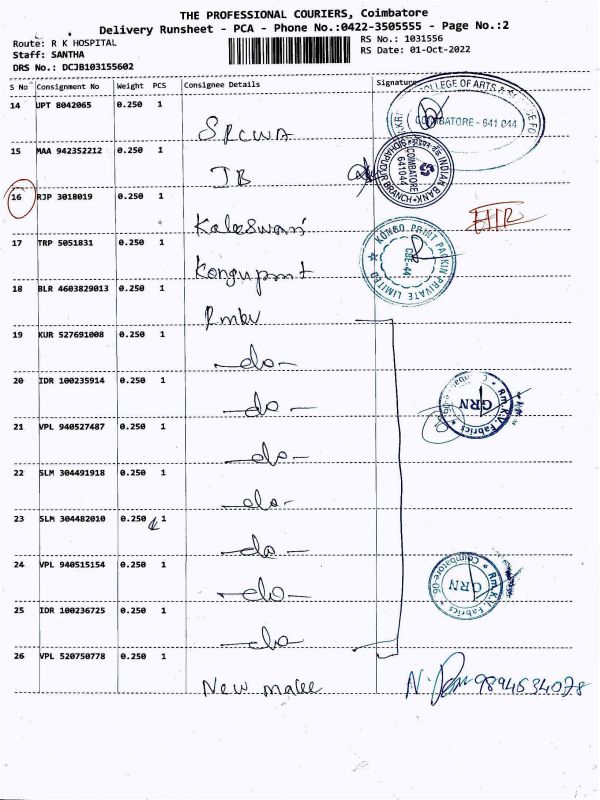 THE PROFESSIONAL COURIERS, Coimbatore
Delivery Runsheet - PCA - Phone No.:0422-3505555 - Page No.:2
Route: R K HOSPITAL
RS No.: 1031556
Staff: SANTHA
RS Date: 01-Oct-2022
DRS No.: DCJB103155602
S No Consignment No Weight PCS Consignee Details Signature
14 UPT 8042065 0.250 1
SRCWA
COLLEGE OF ARTS &
COIMBATORE - 641 044
15 MAA 942352212 0.250 1
IB
INDIAN BANK
COIMBATORE
641044
BRANCH
16 RJP 3018019 0.250 1
Kaleswari
17 TRP 5051831 0.250 1
Konguprint
KONGO PRINT PACKIN PRIVATE LIMITED
CBE-44
18 BLR 4603829013 0.250 1
Rmkv
19 KUR 527691008 0.250 1
-do-
20 IDR 100235914 0.250 1
-do-
Rm.K.V. Fabrics
GRN
21 VPL 940527487 0.250 1
-do-
22 SLM 304491918 0.250 1
-do-
23 SLM 304482010 0.250 1
-do-
24 VPL 940515154 0.250 1
-do-
Rm.K.V. Fabrics * Coimbatore-06 *
GRN
25 IDR 100236725 0.250 1
-do-
26 VPL 520750778 0.250 1
New malee
9894634078